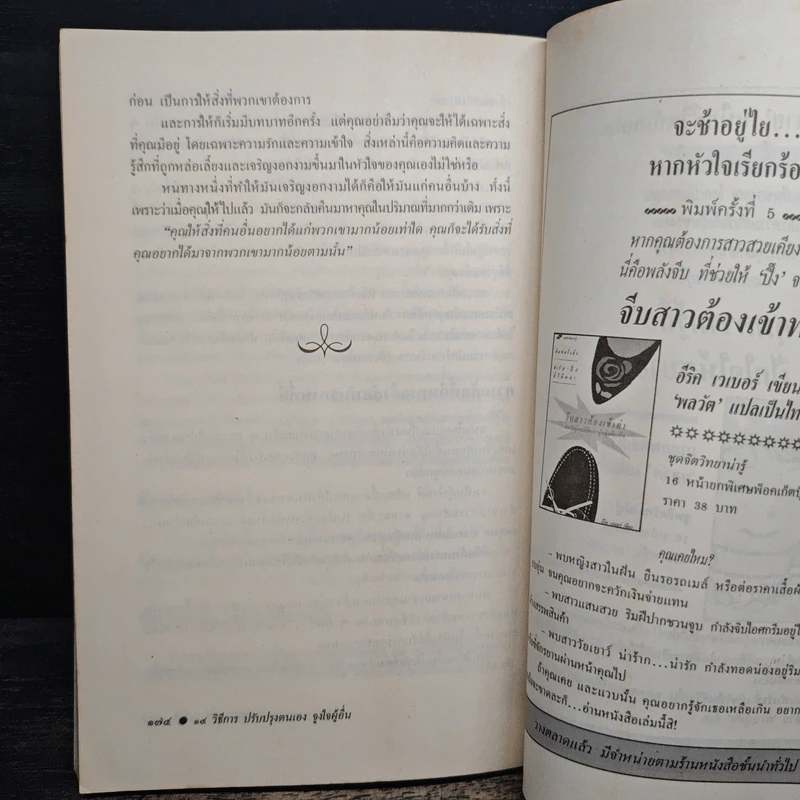 ก่อน เป็นการให้สิ่งที่พวกเขาต้องการ
และการให้ก็เริ่มมีบทบาทอีกครั้ง แต่คุณอย่าลืมว่าคุณจะให้ได้เฉพาะสิ่ง
ที่คุณมีอยู่ โดยเฉพาะความรักและความเข้าใจ สิ่งเหล่านี้คือความคิดและความ
รู้สึกที่ถูกหล่อเลี้ยงและเจริญงอกงามขึ้นมาในหัวใจของคุณเองไม่ใช่หรือ
หนทางหนึ่งที่ทำให้มันเจริญงอกงามได้ก็คือให้มันแก่คนอื่นบ้าง ทั้งนี้
เพราะว่าเมื่อคุณให้ไปแล้ว มันก็จะกลับคืนมาหาคุณในปริมาณที่มากกว่าเดิม เพราะ
“คุณให้สิ่งที่คนอื่นอยากได้แก่พวกเขามากน้อยเท่าใด คุณก็จะได้รับสิ่งที่
คุณอยากได้มาจากพวกเขามากน้อยตามนั้น”
๑๗๔ ● ๑๔ วิธีการ ปรับปรุงตนเอง จูงใจผู้อื่น
จะช้าอยู่ไย...
หากหัวใจเรียกร้อ
พิมพ์ครั้งที่ 5
หากคุณต้องการสาวสวยเคียง
นี่คือพลังจีบ ที่ช่วยให้ ‘ปิ๊ง’ จ
จีบสาวต้องเข้าท
จีบสาวต้องเข้าท่า
อีริค เวเบอร์ เขียน
‘พลวัต’ แปลเป็นไท
ชุดจิตวิทยาน่ารู้
16 หน้ายกพิเศษพ็อคเก็ตบุ๊
ราคา 38 บาท
คุณเคยไหม?
- พบหญิงสาวในฝัน ยืนรอรถเมล์ หรือต่อราคาเสื้อผ้
จนคุณอยากจะควักเงินจ่ายแทน
- พบสาวแสนสวย ริมฝีปากชวนจูบ กำลังจิบไอศกรีมอยู่ใ
สรรพสินค้า
- พบสาววัยเยาว์ น่ารัก...น่ารัก กำลังทอดน่องอยู่ริม
จักรยานผ่านหน้าคุณไป
ถ้าคุณเคย และแวบนั้น คุณอยากรู้จักเธอเหลือเกิน อยาก
จะขาดละก็...อ่านหนังสือเล่มนี้สิ!
วางตลาดแล้ว มีจำหน่ายตามร้านหนังสือชั้นนำทั่วไป